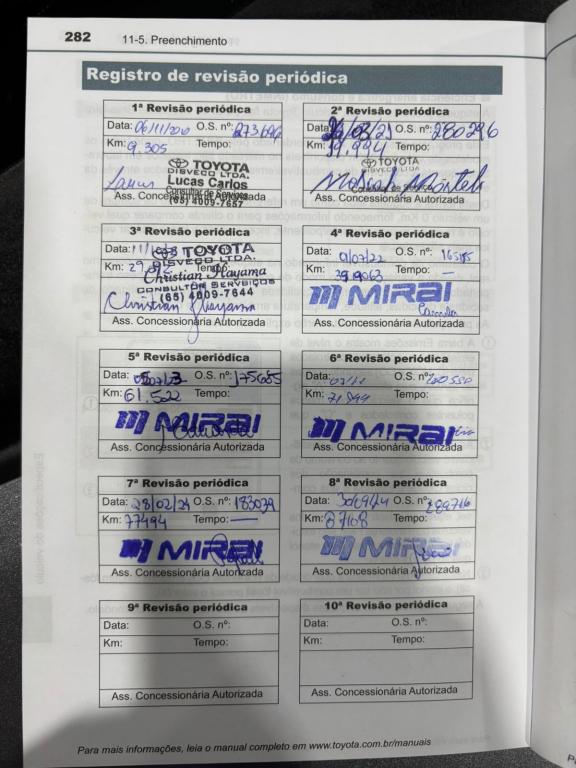 282
11-5. Preenchimento
Registro de revisão periódica
1ª Revisão periódica
Data: 06/11/2020 O.S. nº: 273696
Km: 9.305 Tempo:
TOYOTA
DISVECO LTDA.
Lucas Carlos
Consultor de Serviços
(65) 4009-7657
Ass. Concessionária Autorizada
2ª Revisão periódica
Data: O.S. nº: 280296
Km: 19.994 Tempo:
TOYOTA
DISVECO LTDA
Consultor de Serviço
Ass. Concessionária Autorizada
3ª Revisão periódica
Data:
TOYOTA
DISVECO LTDA.
Km: Tempo:
Christian Hayama
CONSULTOR SERVSIÇOS
(65) 4009-7644
Christian Hayama
Ass. Concessionária Autorizada
4ª Revisão periódica
Data: O.S. nº:
Km: Tempo: —
MIRAI
Ass. Concessionária Autorizada
5ª Revisão periódica
Data: O.S. nº: 175685
Km: 61.522 Tempo:
MIRAI
Ass. Concessionária Autorizada
6ª Revisão periódica
Data: O.S. nº:
Km: 71.899 Tempo:
MIRAI
Ass. Concessionária Autorizada
7ª Revisão periódica
Data: 28/02/24 O.S. nº: 183079
Km: 77494 Tempo: —
MIRAI
Ass. Concessionária Autorizada
8ª Revisão periódica
Data: O.S. nº:
Km: 87108 Tempo:
MIRAI
Ass. Concessionária Autorizada
9ª Revisão periódica
Data: O.S. nº:
Km: Tempo:
Ass. Concessionária Autorizada
10ª Revisão periódica
Data: O.S. nº:
Km: Tempo:
Ass. Concessionária Autorizada
Para mais informações, leia o manual completo em www.toyota.com.br/manuais